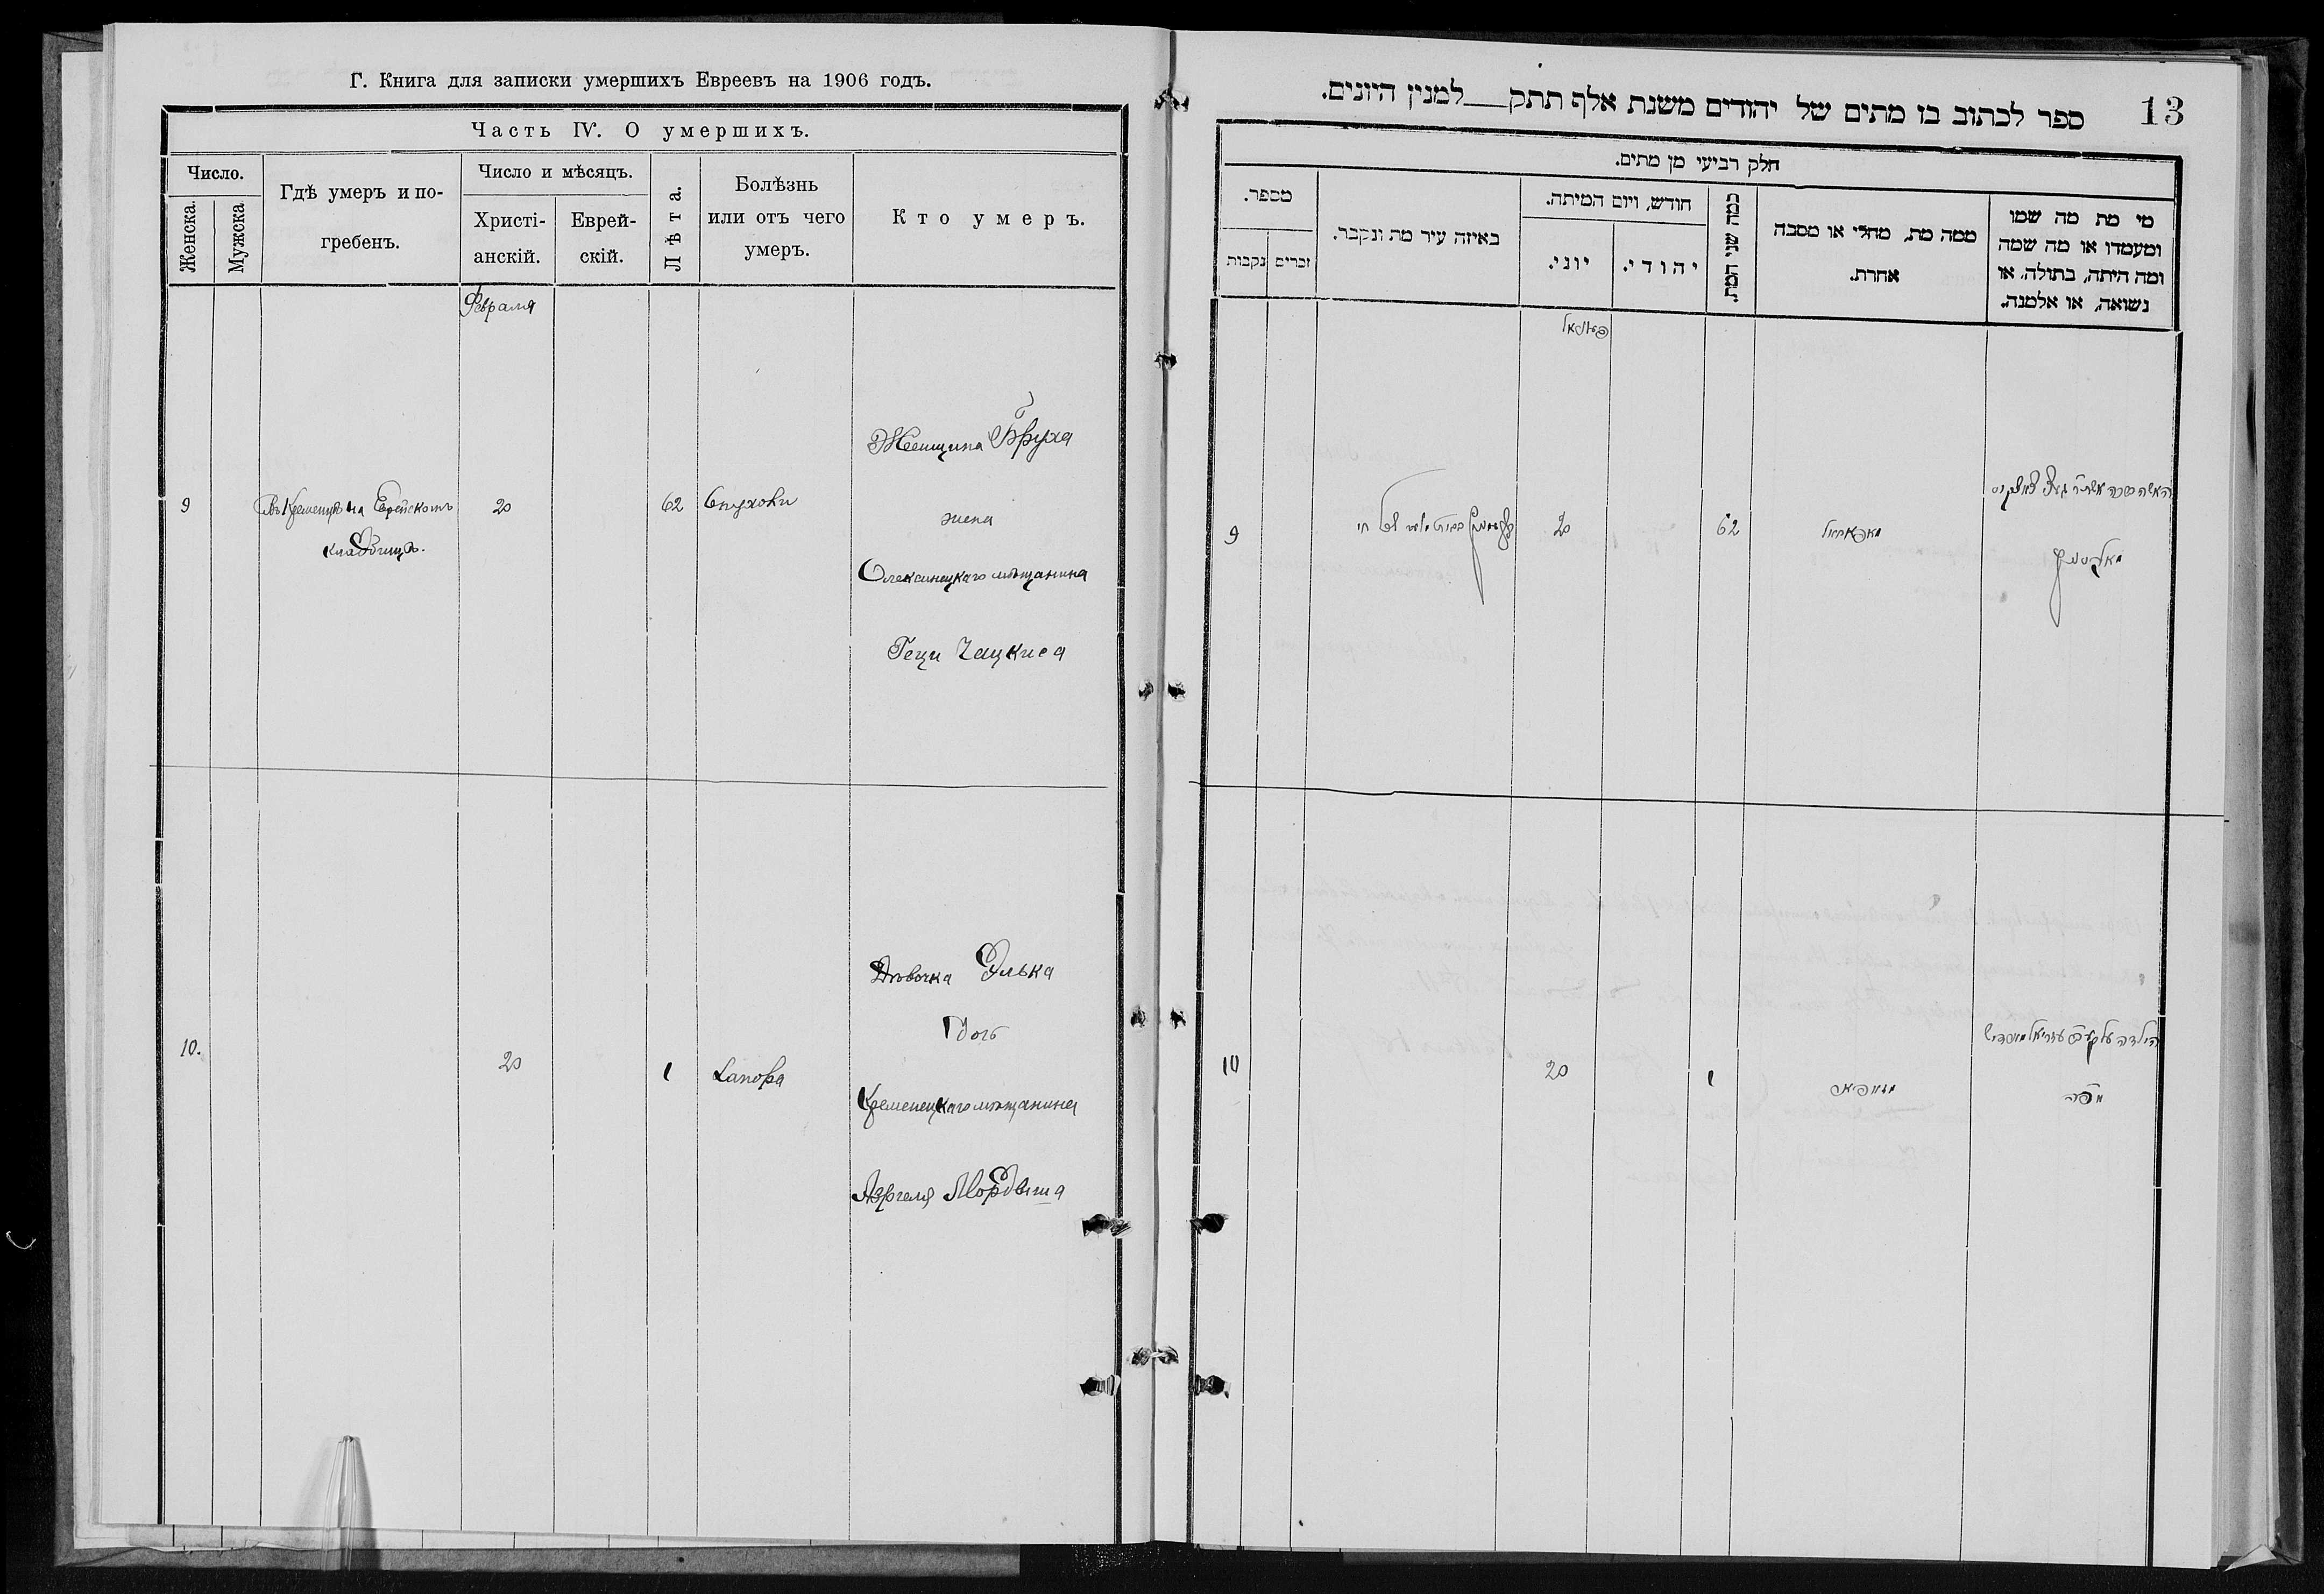 Г. Книга для записки умершихъ Евреевъ на 1906 годъ.
Часть IV. О умершихъ.
Число.
Женска.
Мужска
Гдѣ умеръ и по-
гребенъ.
Число и мѣсяцъ.
Христі-
анскій.
Еврей-
скій.
Лѣта.
Болѣзнь
или отъ чего
умеръ.
Кто умеръ.
Февраля
9
Въ Кременцѣ на Еврейскомъ
кладбищѣ.
20
62
Женщина Бруха
жена
Олексинецкаго мѣщанина
Геци Чацкиса
10.
20
1
Дѣвочка Элька
дочь
Кременецкаго мѣщанина
Азріеля Мордыша
13
ספר לכתוב בו מתים של יהודים משנת אלף תתק___למנין היונים.
חלק רביעי מן מתים.
מספר.
נקבות
זכרים
באיזה עיר מת ונקבר.
חודש, ויום המיתה.
יוני.
יהודי.
כמה שני המת.
ממה מת, מחלי או מסבה
אחרת.
מי מת מה שמו
ומעמדו או מה שמה
ומה היתה, בתולה, או
נשואה, או אלמנה.
9
20
62
האשה ברכה אשת
10
20
1
הילדה עלקע בת עזריאל